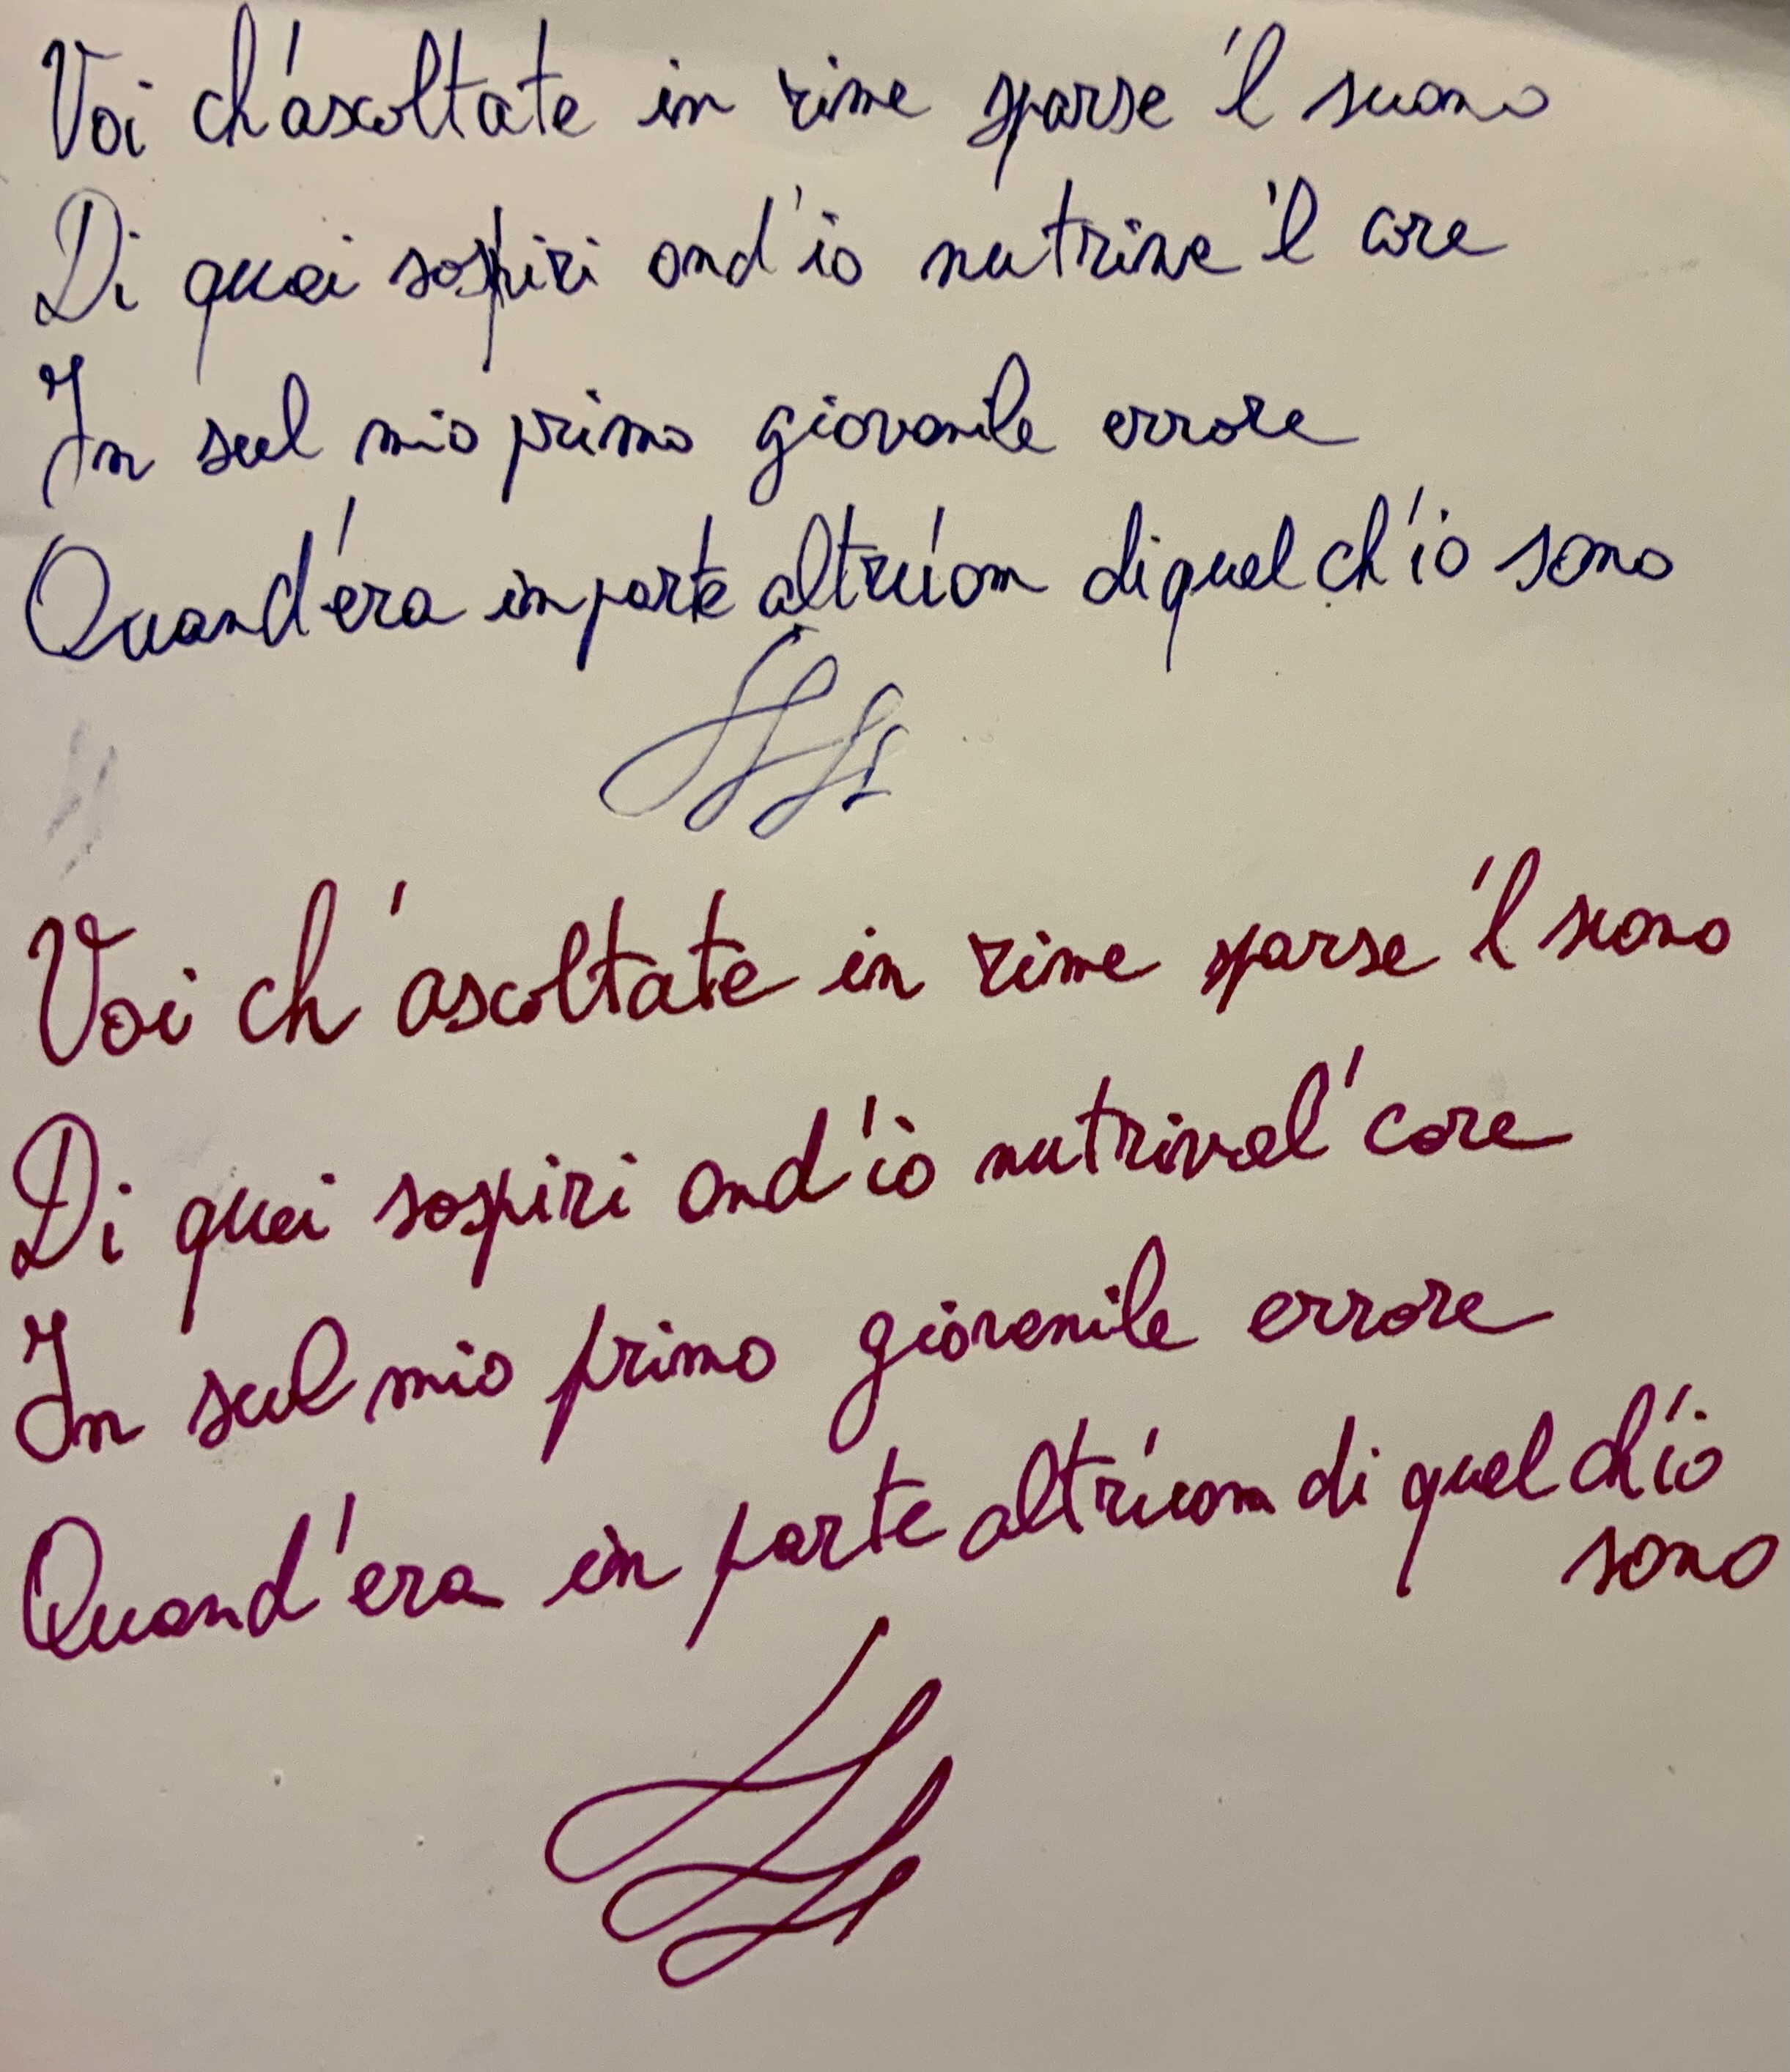 Voi ch'ascoltate in rime sparse 'l suono
Di quei sospiri ond'io nutriva 'l core
In sul mio primo giovanile errore
Quand'era in parte altr'uom di quel ch'io sono
Voi ch'ascoltate in rime sparse 'l suono
Di quei sospiri ond'io nutrival' core
In sul mio primo giovenile errore
Quand'era in parte altr'uom di quel ch'io
sono